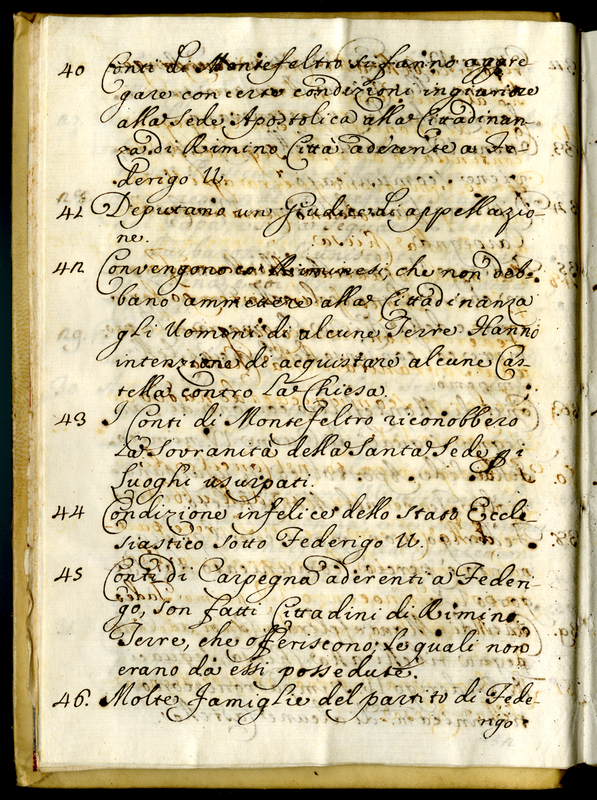 40 Conti di Montefeltro si fanno aggre
gare con certe condizioni ingiuriose
alla Sede Apostolica alla Cittadinan-
za di Rimino Citta aderente a Fe-
derigo II.
41 Deputano un Giudice di appellazio-
ne.
42 Convengono co' Riminesi, che non deb-
bano ammettere alla Cittadinanza
gli Uomini di alcune Terre. Hanno
intenzione di acquistare alcune Cas-
tella contro La Chiesa.
43 I Conti di Montefeltro riconobbero
La Sovranità della Santa Sede pi
Luoghi usurpati.
44 Condizione infelice dello Stato Eccle-
siastico sotto Federigo II.
45 Conti di Carpegna aderenti a Federi-
go, son fatti Cittadini di Rimino.
Terre, che offeriscono; Le quali non
erano da essi possedute.
46. Molte famiglie del partito di Fede-
rigo